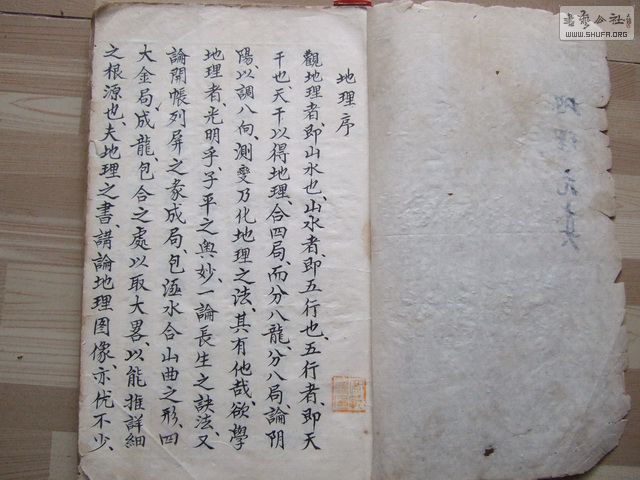 地理序
觀地理者、即山水也、山水者、即五行也、五行者即天
干也、天干以得地理、合四局、而分八龍、分八局論陰
陽、以調八向、測變乃化地理之法、其有他哉、欲學
地理者、光明乎、子平之奧妙、一論長生之訣法、又
論開帳列屏之象成局、包涇水合山曲之形、四
大金局、成龍、包合之處以取大畧、以能推詳細
之根源也、夫地理之書、講論地理图像、亦优不少、
書藝公社
WWW.SHUFA.ORG